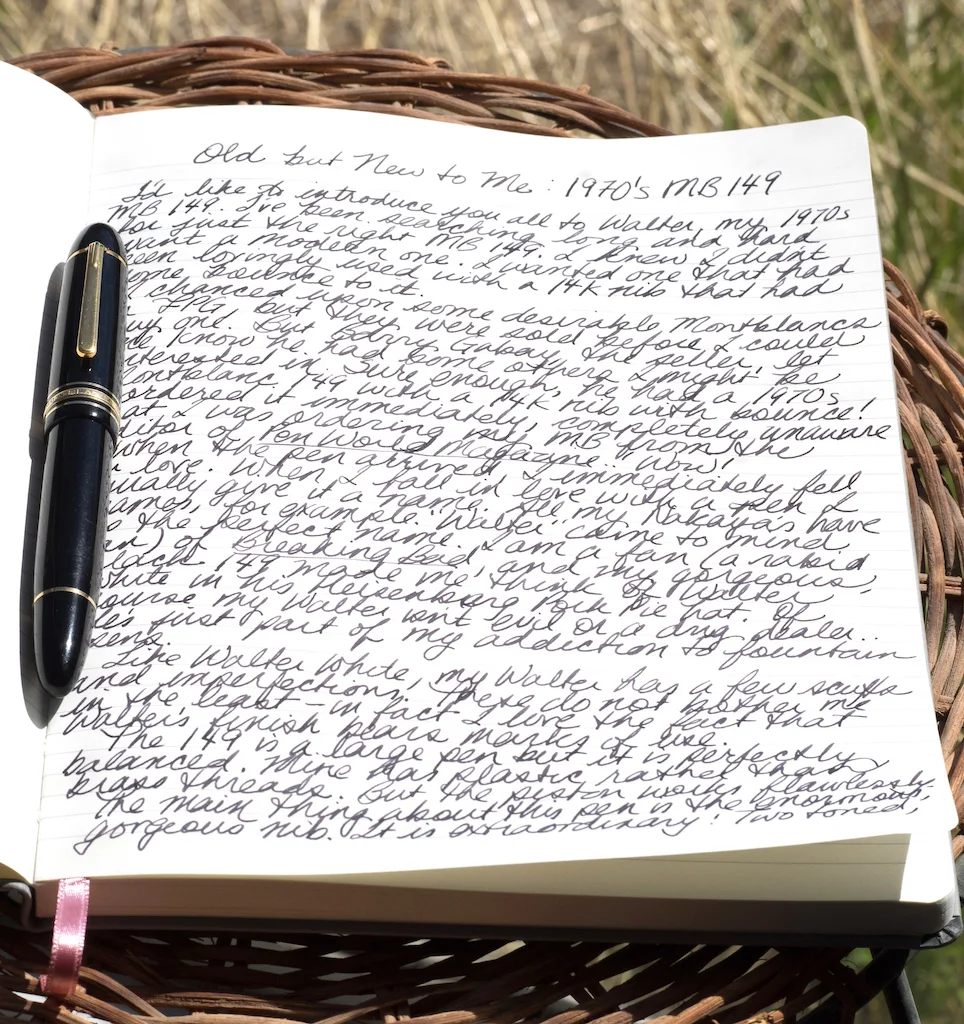 Old but New to Me: 1970's MB 149
I'd like to introduce you all to Walter, my 1970s
MB 149. I've been searching long and hard
for just the right MB 149. I knew I didn't
want a modern one. I wanted one that had
been lovingly used with a 14K nib that had
some bounce to it.
I chanced upon some desirable Montblancs
FPG but they were sold before I could
buy one. But Barry Gabay, the seller, let
me know he had some others I might be
interested in. Sure enough, he had a 1970s
Montblanc 149 with a 14K nib with bounce!
ordered it immediately, completely unaware
that I was ordering my MB from the
editor of Pen World Magazine. Wow!
When the pen arrived I immediately fell
in love. When I fall in love with a pen I
usually give it a name. All my Nakayas have
names, for example. "Walter" came to mind
as the perfect name. I am a fan (a rabid
fan) of Breaking Bad, and my gorgeous,
black 149 made me think of Walter
White in his Heisenberg pork pie hat. Of
course my Walter isn't evil or a drug dealer..
he's just part of my addiction to fountain
pens.
Like Walter White, my Walter has a few scuffs
and imperfections. These do not bother me
in the least - in fact I love the fact that
Walter's finish bears marks of use.
The 149 is a large pen but it is perfectly
balanced. Mine has plastic rather than
brass threads. But the piston works flawlessly.
The main thing about this pen is the enormous,
gorgeous nib. It is extraordinary! Two toned,